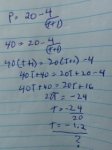 P = 20 - 4/(t+1)
40 = 20 - 4/(t+1)
40(t+1) = 20(t+1) - 4
40t + 40 = 20t + 20 - 4
40t + 40 = 20t + 16
2t = -24
t = -24/20
t = -1.2